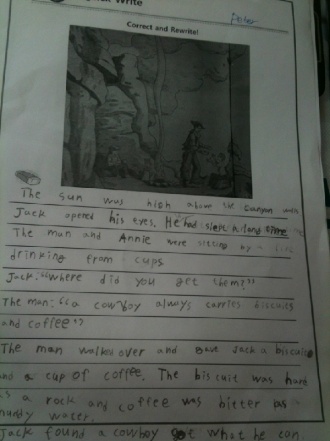 Write
Peter
Correct and Rewrite!
The sun was high above the canyon when
Jack opened his eyes. He had slept a long time
The man and Annie were sitting by a
drinking from cups
Jack: "where did you get them?"
The man: "a cowboy always carries biscuits
and coffee"
The man walked over and gave Jack a biscuit
and a cup of coffee. The biscuit was hard
as a rock and coffee was bitter as
muddy water.
Jack found a cowboy got what he can.